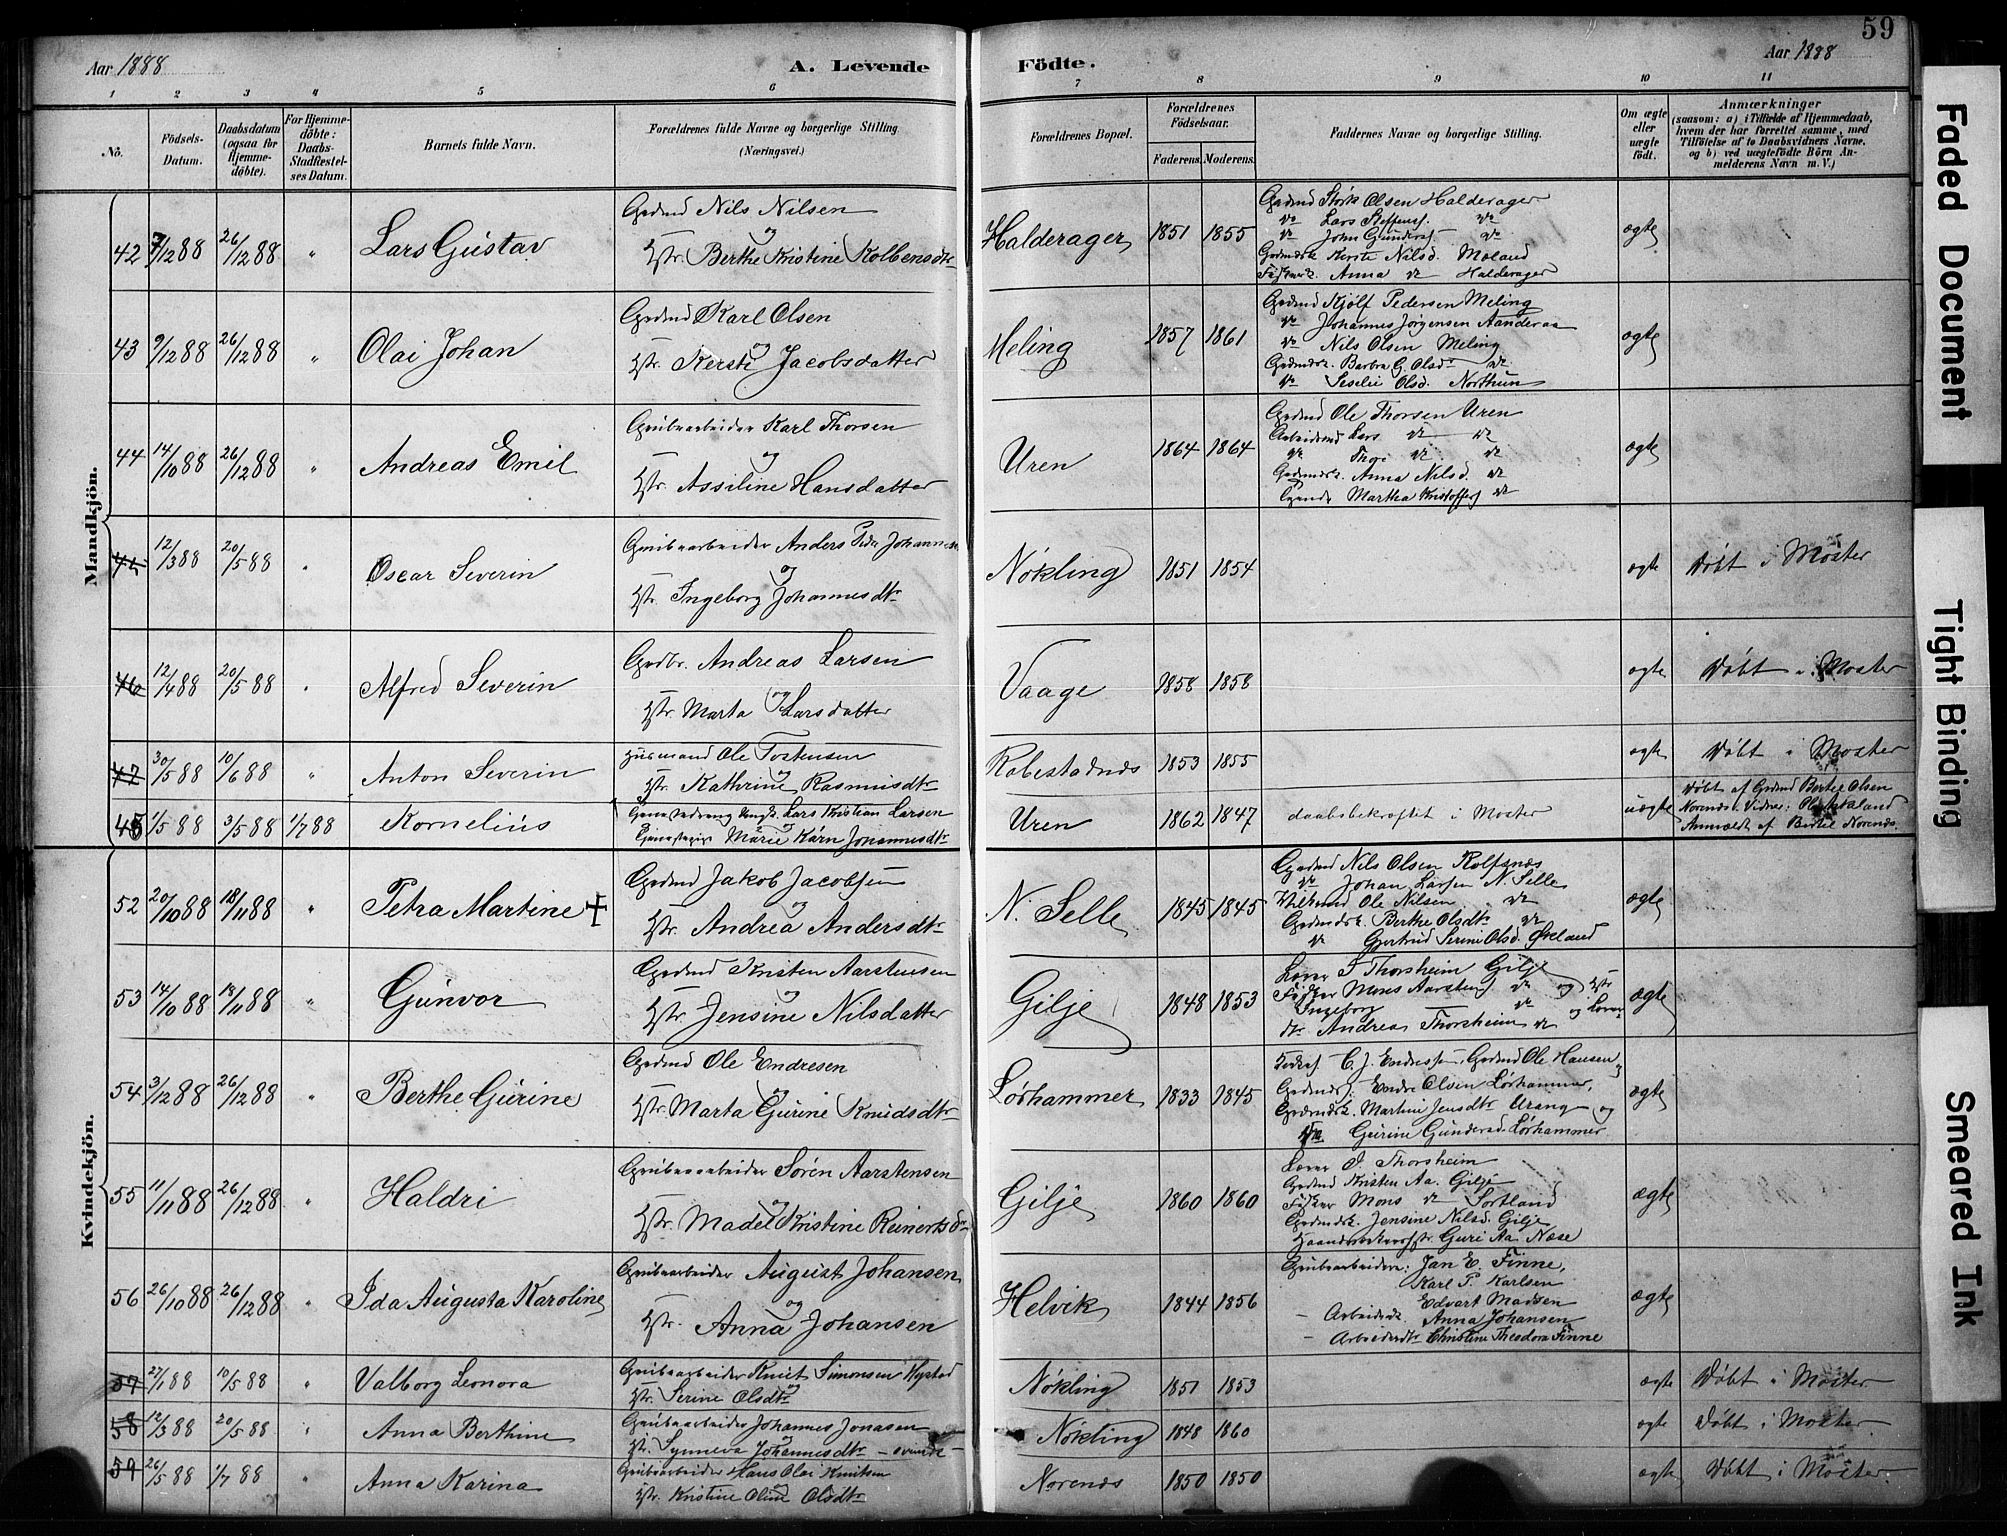 59
Aar 1888
A. Levende
Födte.
Aar 1888
1 2 3 4 5 6 7 8 9 10 11
No.
Födsels-Datum.
Daabsdatum (ogsaa for Hjemme-döbte).
For Hjemme-döbte: Daabs-Stadfæstel-ses Datum.
Barnets fulde Navn.
Forældrenes fulde Navne og borgerlige Stilling (Næringsvei.)
Forældrenes Bopæl.
Forældrenes Födselsaar.
Faderens. Moderens.
Faddernes Navne og borgerlige Stilling.
Om ægte eller uægte födt.
Anmærkninger (saasom: a) i Tilfælde af Hjemmedaab, hvem der har forrettet samme, med Tilföielse af to Daabsvidners Navne, og b) ved uægtefödte Börn An-melderens Navn m. V.)
Mandkjön.
42 7/12 88 26/12 88 " Lars Gustav
Grdmd Nils Nilsen
og
Hstr. Berthe Kristine Kolbensdtr
Halderager 1851 1855
Gardmd Størk Olsen Halderager
do Lars Steffens. do
do John Gunders. do
Grdmdsk. Kirste Nilsd. Moland
Anna do Halderager
ægte
43 9/12 88 26/12 88 " Olai Johan
Grdmd Karl Olsen
og
Hstr. Kersti Jacobsdatter
Meling 1857 1861
Grdmd Kjölf Pedersen Meling
do Johannes Jørgensen Aanderaa
do Nils Olsen Meling
Grdmdsk. Barbra G. Olsdr do
do Seselie Olsd. Northun
ægte
44 14/10 88 26/12 88 " Andreas Emil
Grubearbeider Karl Thorsen
og
Hstr. Assiline Hansdatter
Uren 1864 1864
Grdmd Ole Thorsen Uren
Arbeidsmd Lars do do
do Thor do do
Grdmdsk. Anna Nilsd. do
Martha Kristoffers do
ægte
45 12/3 88 20/5 88 " Oscar Severin
Grubearbeider Anders Peder Johannesen
og
Hstr. Ingeborg Johannesdtr
Nökling 1851 1854
ægte Döbt i Moster
46 12/4 88 20/5 88 " Alfred Severin
Grdbr. Andreas Larsen
og
Hstr Marta Larsdatter
Vaage 1858 1858
ægte Döbt i Moster
47 30/5 88 10/6 88 " Anton Severin
Husmand Ole Tostensen
og
Hstr. Kathrine Rasmusdtr
Robestadnes 1853 1855
ægte Döbt i Moster
45 1/5 88 3/5 88 1/7 88 Kornelius
Lars Kristian Larsen
og
Marie Karn Johannesdtr
Uren 1862 1847
daabsbekræftet i Moster
uægte
Döbt af Grdmd Bertel Olsen
Norends. Vidner:
Anmeldt af Bertel Norends.
Kvindekjön.
52 20/10 88 18/11 88 " Petra Martine +
Grdmd Jakob Jacobsen
og
Hstr. Andrea Andersdtr
N. Selle 1845 1845
Grdmd Nils Olsen Rolfsnæs
do Johan Larsen N. Selle
Ole Nilsen do
Grdmdsk. Berthe Olsdtr. do
do Gjertrud Serine Olsd. Økland
ægte
53 14/10 88 18/11 88 " Gunvor
Grdmd Kristen Aarstensen
og
Hstr Jensine Nilsdatter
Gilje 1848 1853
Lærer J Thorsheim Gilje
Mons Aarstens. do og Hstr
Ingeborg do og Lærer
dtr Andrea Thorsheim do
ægte
54 3/12 88 26/12 88 " Berthe Gurine
Grdmd Ole Endresen
og
Hstr. Marta Gurine Knudsdtr
Lørhammer 1833 1845
C. J. Endresen, Grdmd Ole Hansen
Endre Olsen Lørhammer,
Grdmdsk. Martine Jensdtr Urang og
Gurine Gundersd. Lørhammer
ægte
55 11/11 88 26/12 88 " Haldri
Grubearbeider Sören Aarstensen
og
Hstr. Madel Kristine Reinertsdr
Gilje 1860 1860
Lærer J. Thorsheim
Grdmd Kristen Aa. Gilje
Mons do Sortland
Grdmdsk. Jensine Nilsd. Gilje
Guri Aa. Næse
ægte
56 26/10 88 26/12 88 " Ida Augusta Karoline
Grubearbeider August Johansen
og
Hstr. Anna Johansen
Helvik 1844 1856
Grubearbeidere: Jan E. Finne,
Karl P. Karlsen
Edvart Madsen
- Arbeidsk. Anna Johansen
- Arbeiderdtr Christine Theodora Finne
ægte
57 27/1 88 10/5 88 " Valborg Leonora
Grubearbeider Knut Simonsen Hystad
og
Hstr. Serine Olsdtr
Nökling 1851 1853
ægte Döbt i Moster
58 12/3 88 20/5 88 " Anna Berthine
Grubearbeider Johannes Jonasen
Hstr. Synneva Johannesdtr
Nökling 1848 1860
ægte Döbt i Moster
59 26/5 88 1/7 88 Anna Karina
Grubearbeider Hans Olai Knutsen
og
Hstr. Kristine Oline Olsdtr
Norends 1850 1850
ægte Döbt i Moster.
Faded Document
Tight Binding
Smeared Ink